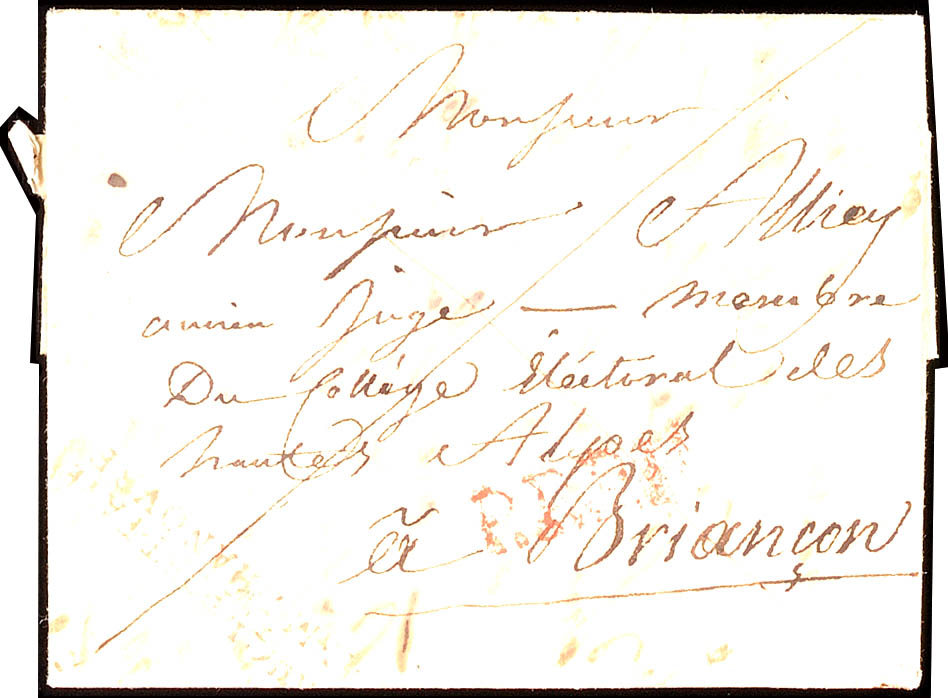 Monsieur
Monsieur Alliey
ancien Juge — membre
Du Collége Electoral des
hautes Alpes
à Briançon